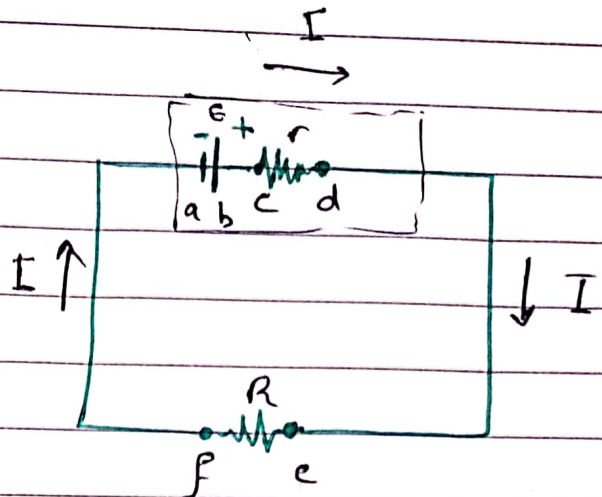 I
ε
- + r
a b c d
I I
R
f e